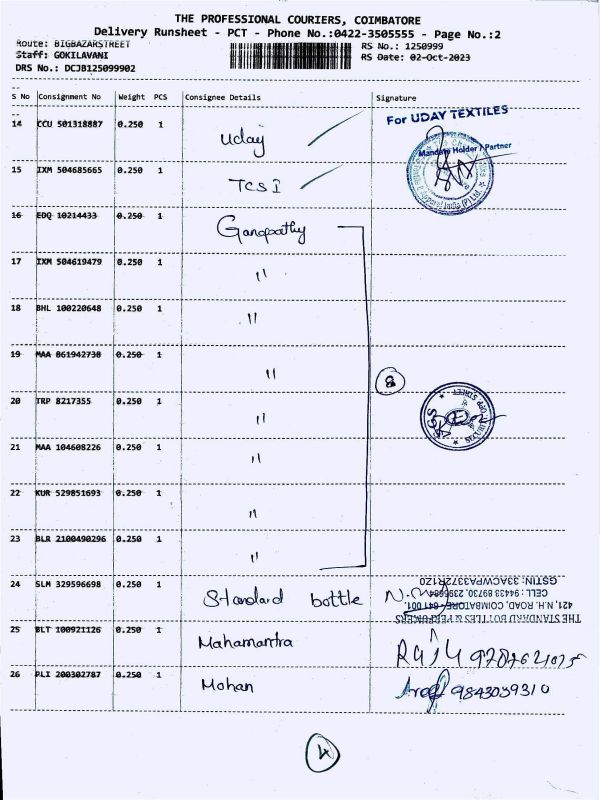 THE PROFESSIONAL COURIERS, COIMBATORE
Delivery Runsheet - PCT - Phone No.:0422-3505555 - Page No.:2
Route: BIGBAZARSTREET
RS No.: 1250999
Staff: GOKILAVANI
RS Date: 02-Oct-2023
DRS No.: DCJB125099902
S No Consignment No Weight PCS Consignee Details Signature
For UDAY TEXTILES
14 CCU 501318887 0.250 1 Uday
Mandate Holder / Partner
15 IXM 504685665 0.250 1 TCSI
16 EDQ 10214433 0.250 1 Ganapathy
17 IXM 504619479 0.250 1 "
18 BHL 100220648 0.250 1 "
19 MAA 861942730 0.250 1 "
8
20 TRP 8217355 0.250 1 "
SGS SECURITY OPP STREET
21 MAA 104608226 0.250 1 "
22 KUR 529851693 0.250 1 "
23 BLR 2100490296 0.250 1 "
24 SLM 329596698 0.250 1 Standard bottle
THE STANDARD BOTTLES & PERFUMERS
421, N.H. ROAD, COIMBATORE-641 001
CELL : 94433 89730,
GSTIN: 33ACWPA3372R1Z0
25 BLT 100921126 0.250 1 Mahamantra
26 PLI 200302787 0.250 1 Mohan 9843039310
4